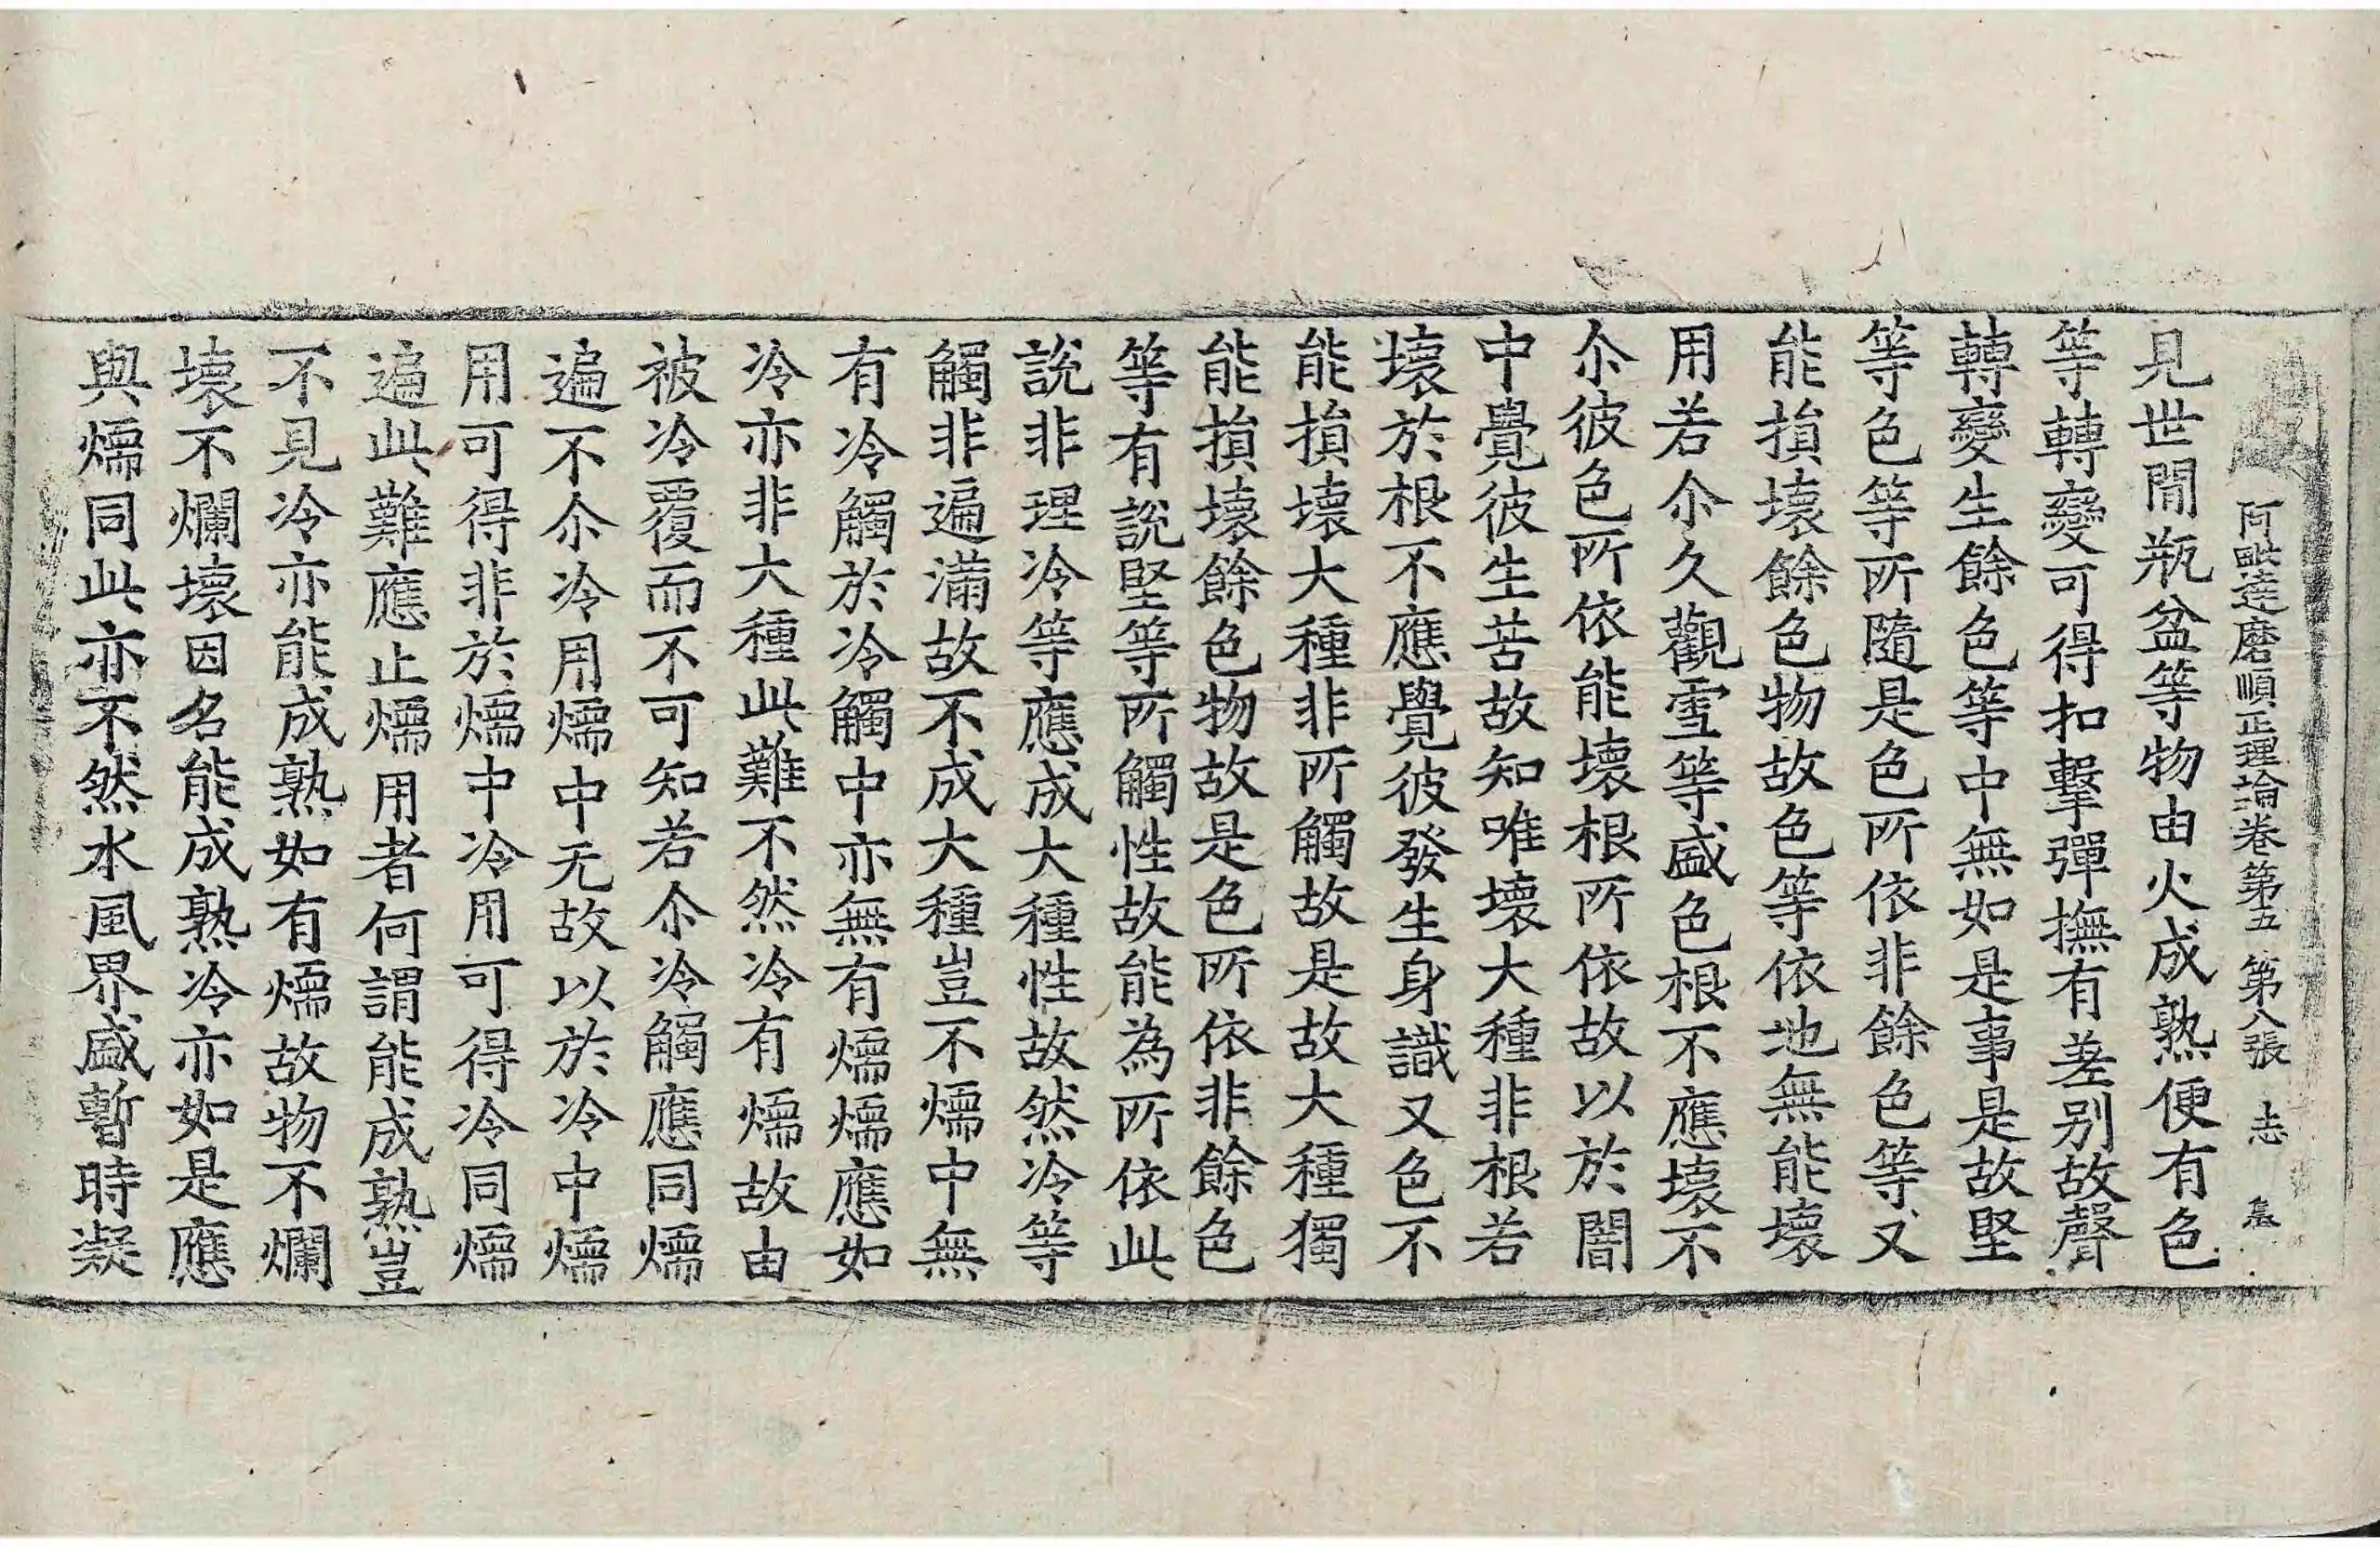 阿毗達磨順正理論卷第五 第八張 志
見世間瓶盆等物由火成熟便有色
等轉變可得扣擊彈撫有差別故聲
轉變生餘色等中無如是事是故堅
等色等所隨是色所依非餘色等又
能損壞餘色物故色等依地無能壞
用若尒久觀雪等盛色根不應壞不
尒彼色所依能壞根所依故以於闇
中覺彼生苦故知唯壞大種非根若
壞於根不應覺彼發生身識又色不
能損壞大種非所觸故是故大種獨
能損壞餘色物故是色所依非餘色
等有說堅等所觸性故能為所依此
說非理冷等應成大種性故然冷等
觸非遍滿故不成大種豈不煗中無
有冷觸於冷觸中亦無有煗煗應如
冷亦非大種此難不然冷有煗故由
被冷覆而不可知若尒冷觸應同煗
遍不尒冷用煗中无故以於冷中煗
用可得非於煗中冷用可得冷同煗
遍此難應止煗用者何謂能成熟豈
不見冷亦能成熟如有煗故物不爛
壞不爛壞因名能成熟冷亦如是應
與煗同此亦不然水風界盛暫時凝